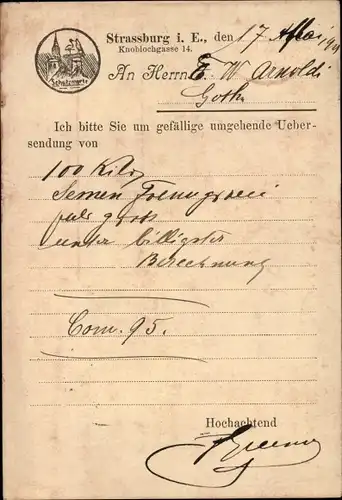 Strassburg i. E., den 17 Mai
Knoblochgasse 14.
Schutzmarke
An Herrn E. W. Arnoldi
Gotha
Ich bitte Sie um gefällige umgehende Ueber-
sendung von
100 Kilo
Semen Foenugraeci
pulv gross
unter billigster
Berechnung
Com. 95.
Hochachtend